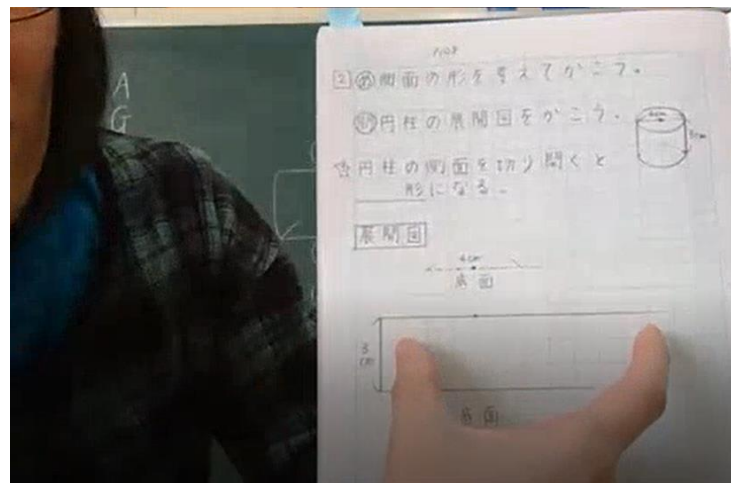 A
G
P108
2 あ側面の形を考えてかこう。
円柱の展開図をかこう。
4cm
3cm
☆円柱の側面を切り開くと
形になる。
展開図
4cm
底面
3
cm